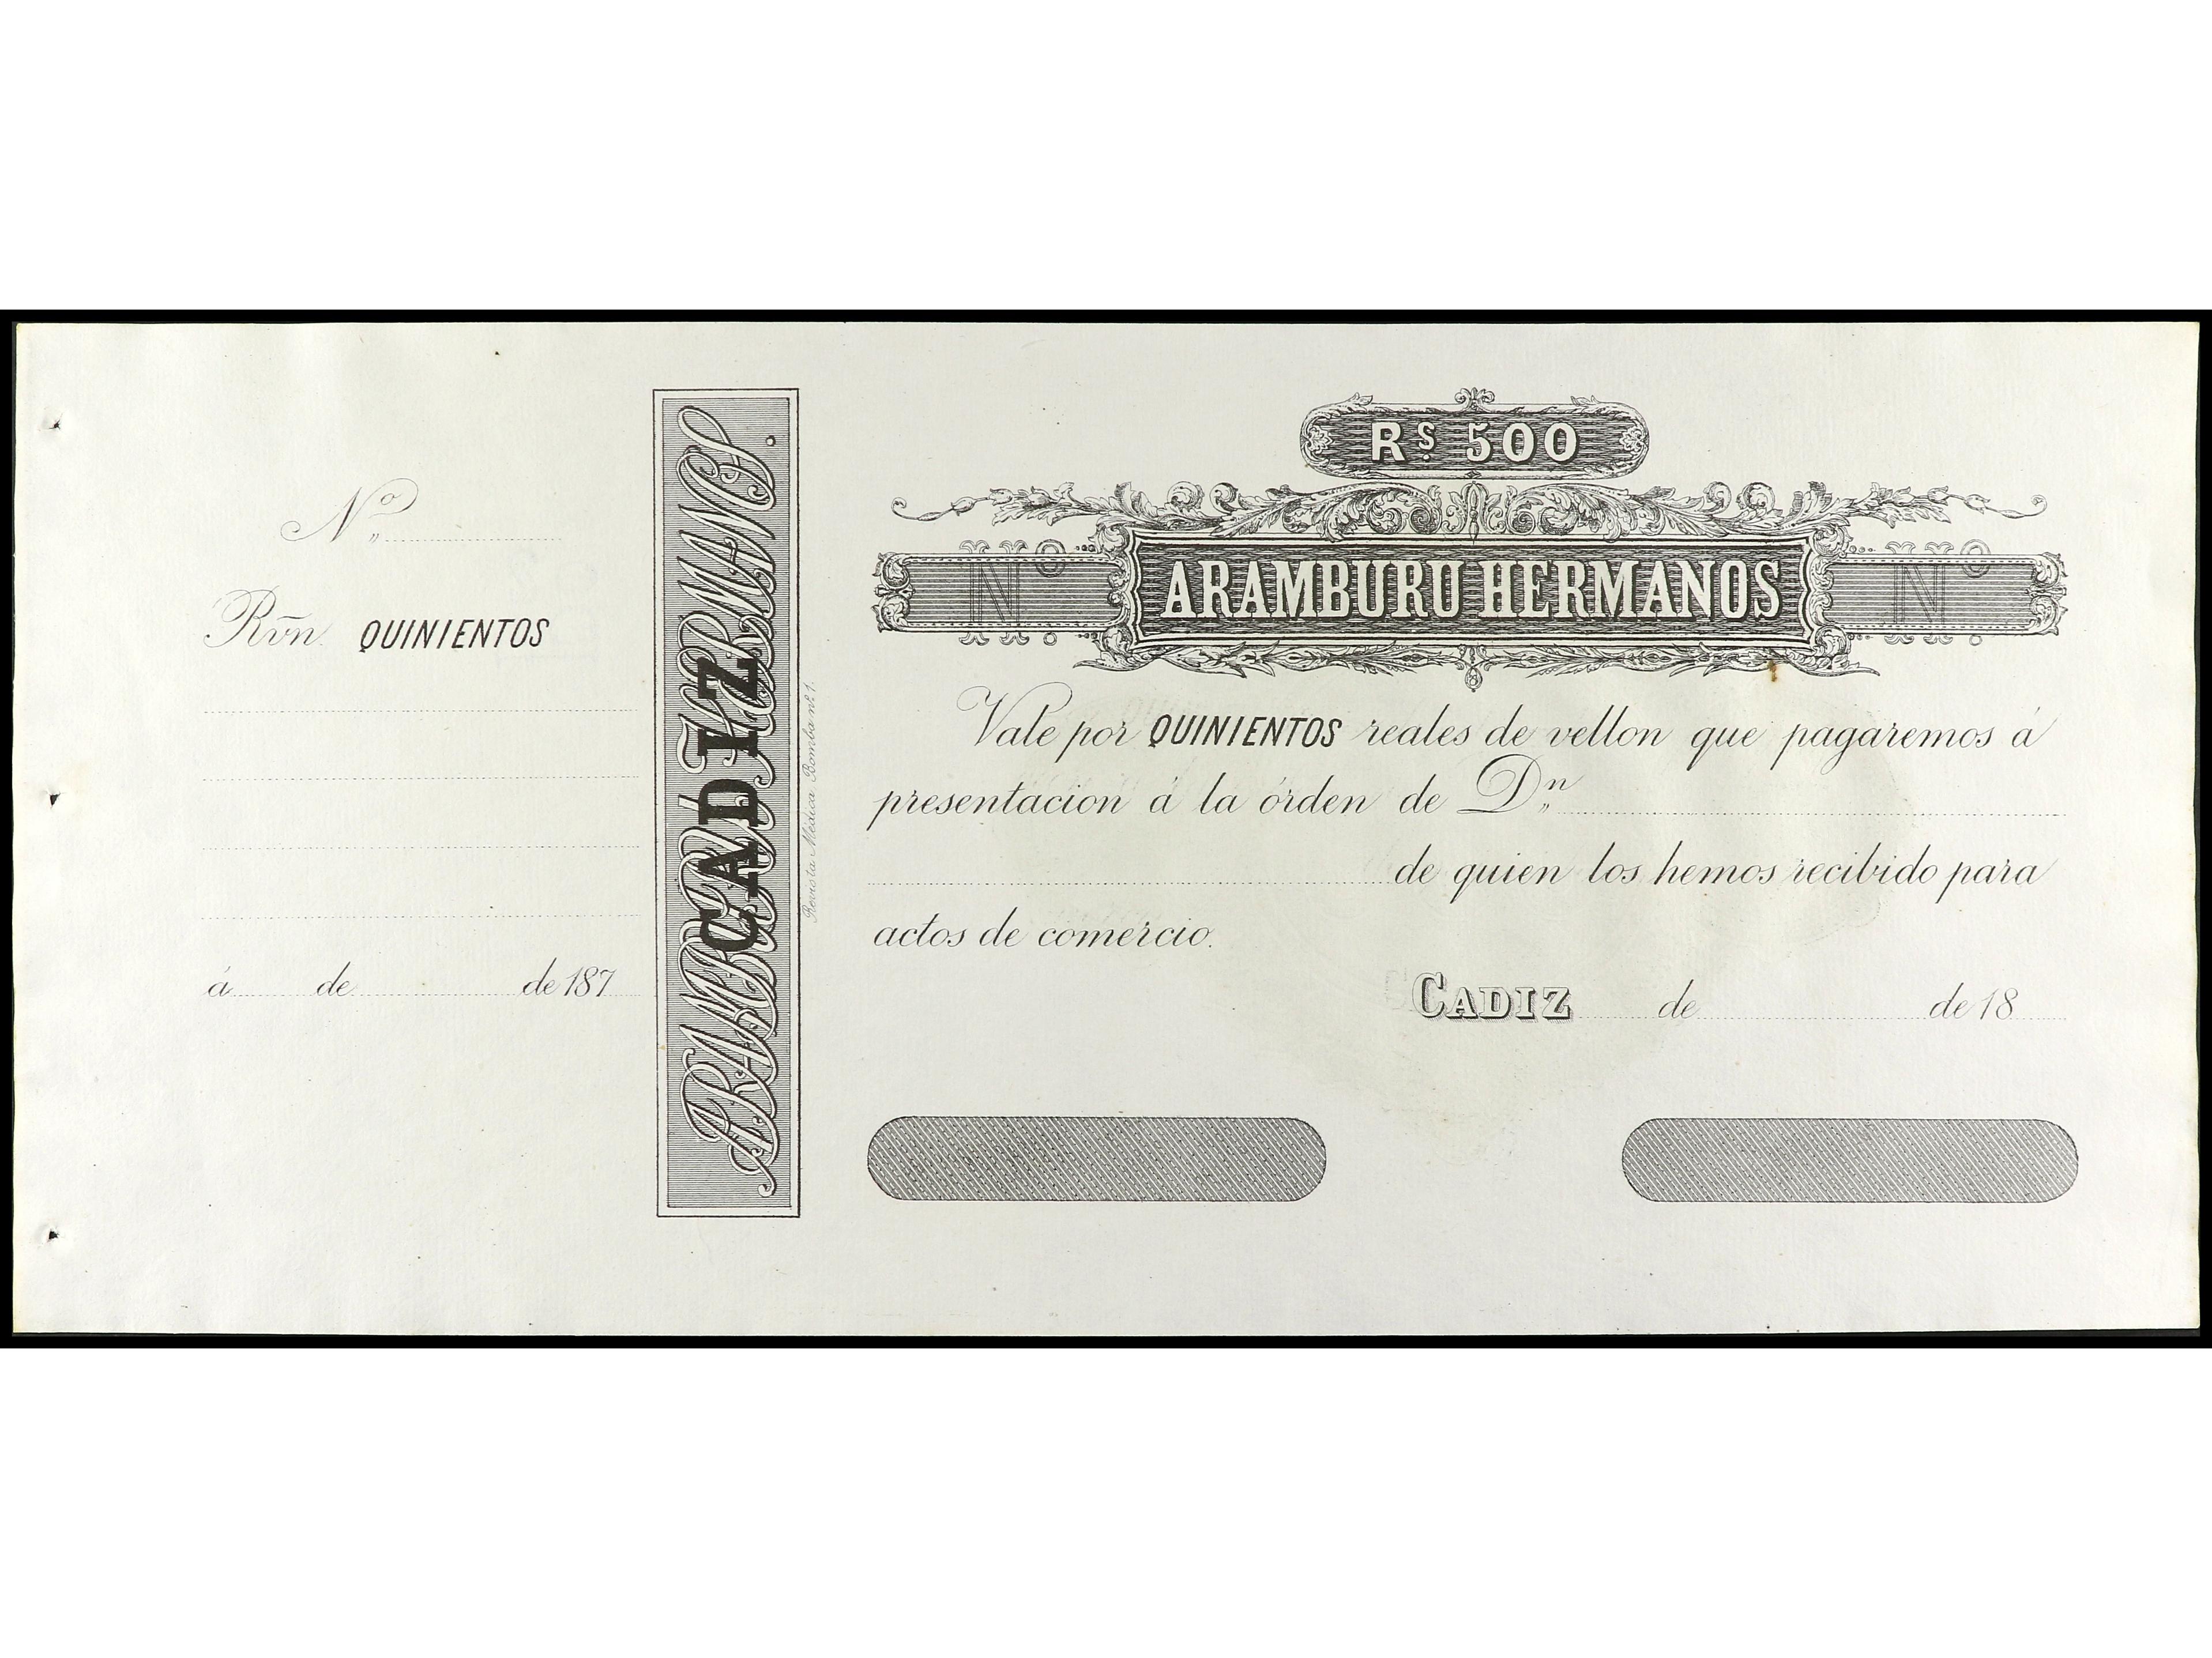 Nº
Rvn. QUINIENTOS
á de de 187
ARAMBURU HERMANOS.
CADIZ
Revista Médica Bomba nº 1.
Rs. 500
Nº ARAMBURU HERMANOS Nº
Vale por QUINIENTOS reales de vellon que pagaremos á
presentacion á la órden de Dn
de quien los hemos recibido para
actos de comercio.
CADIZ de de 18